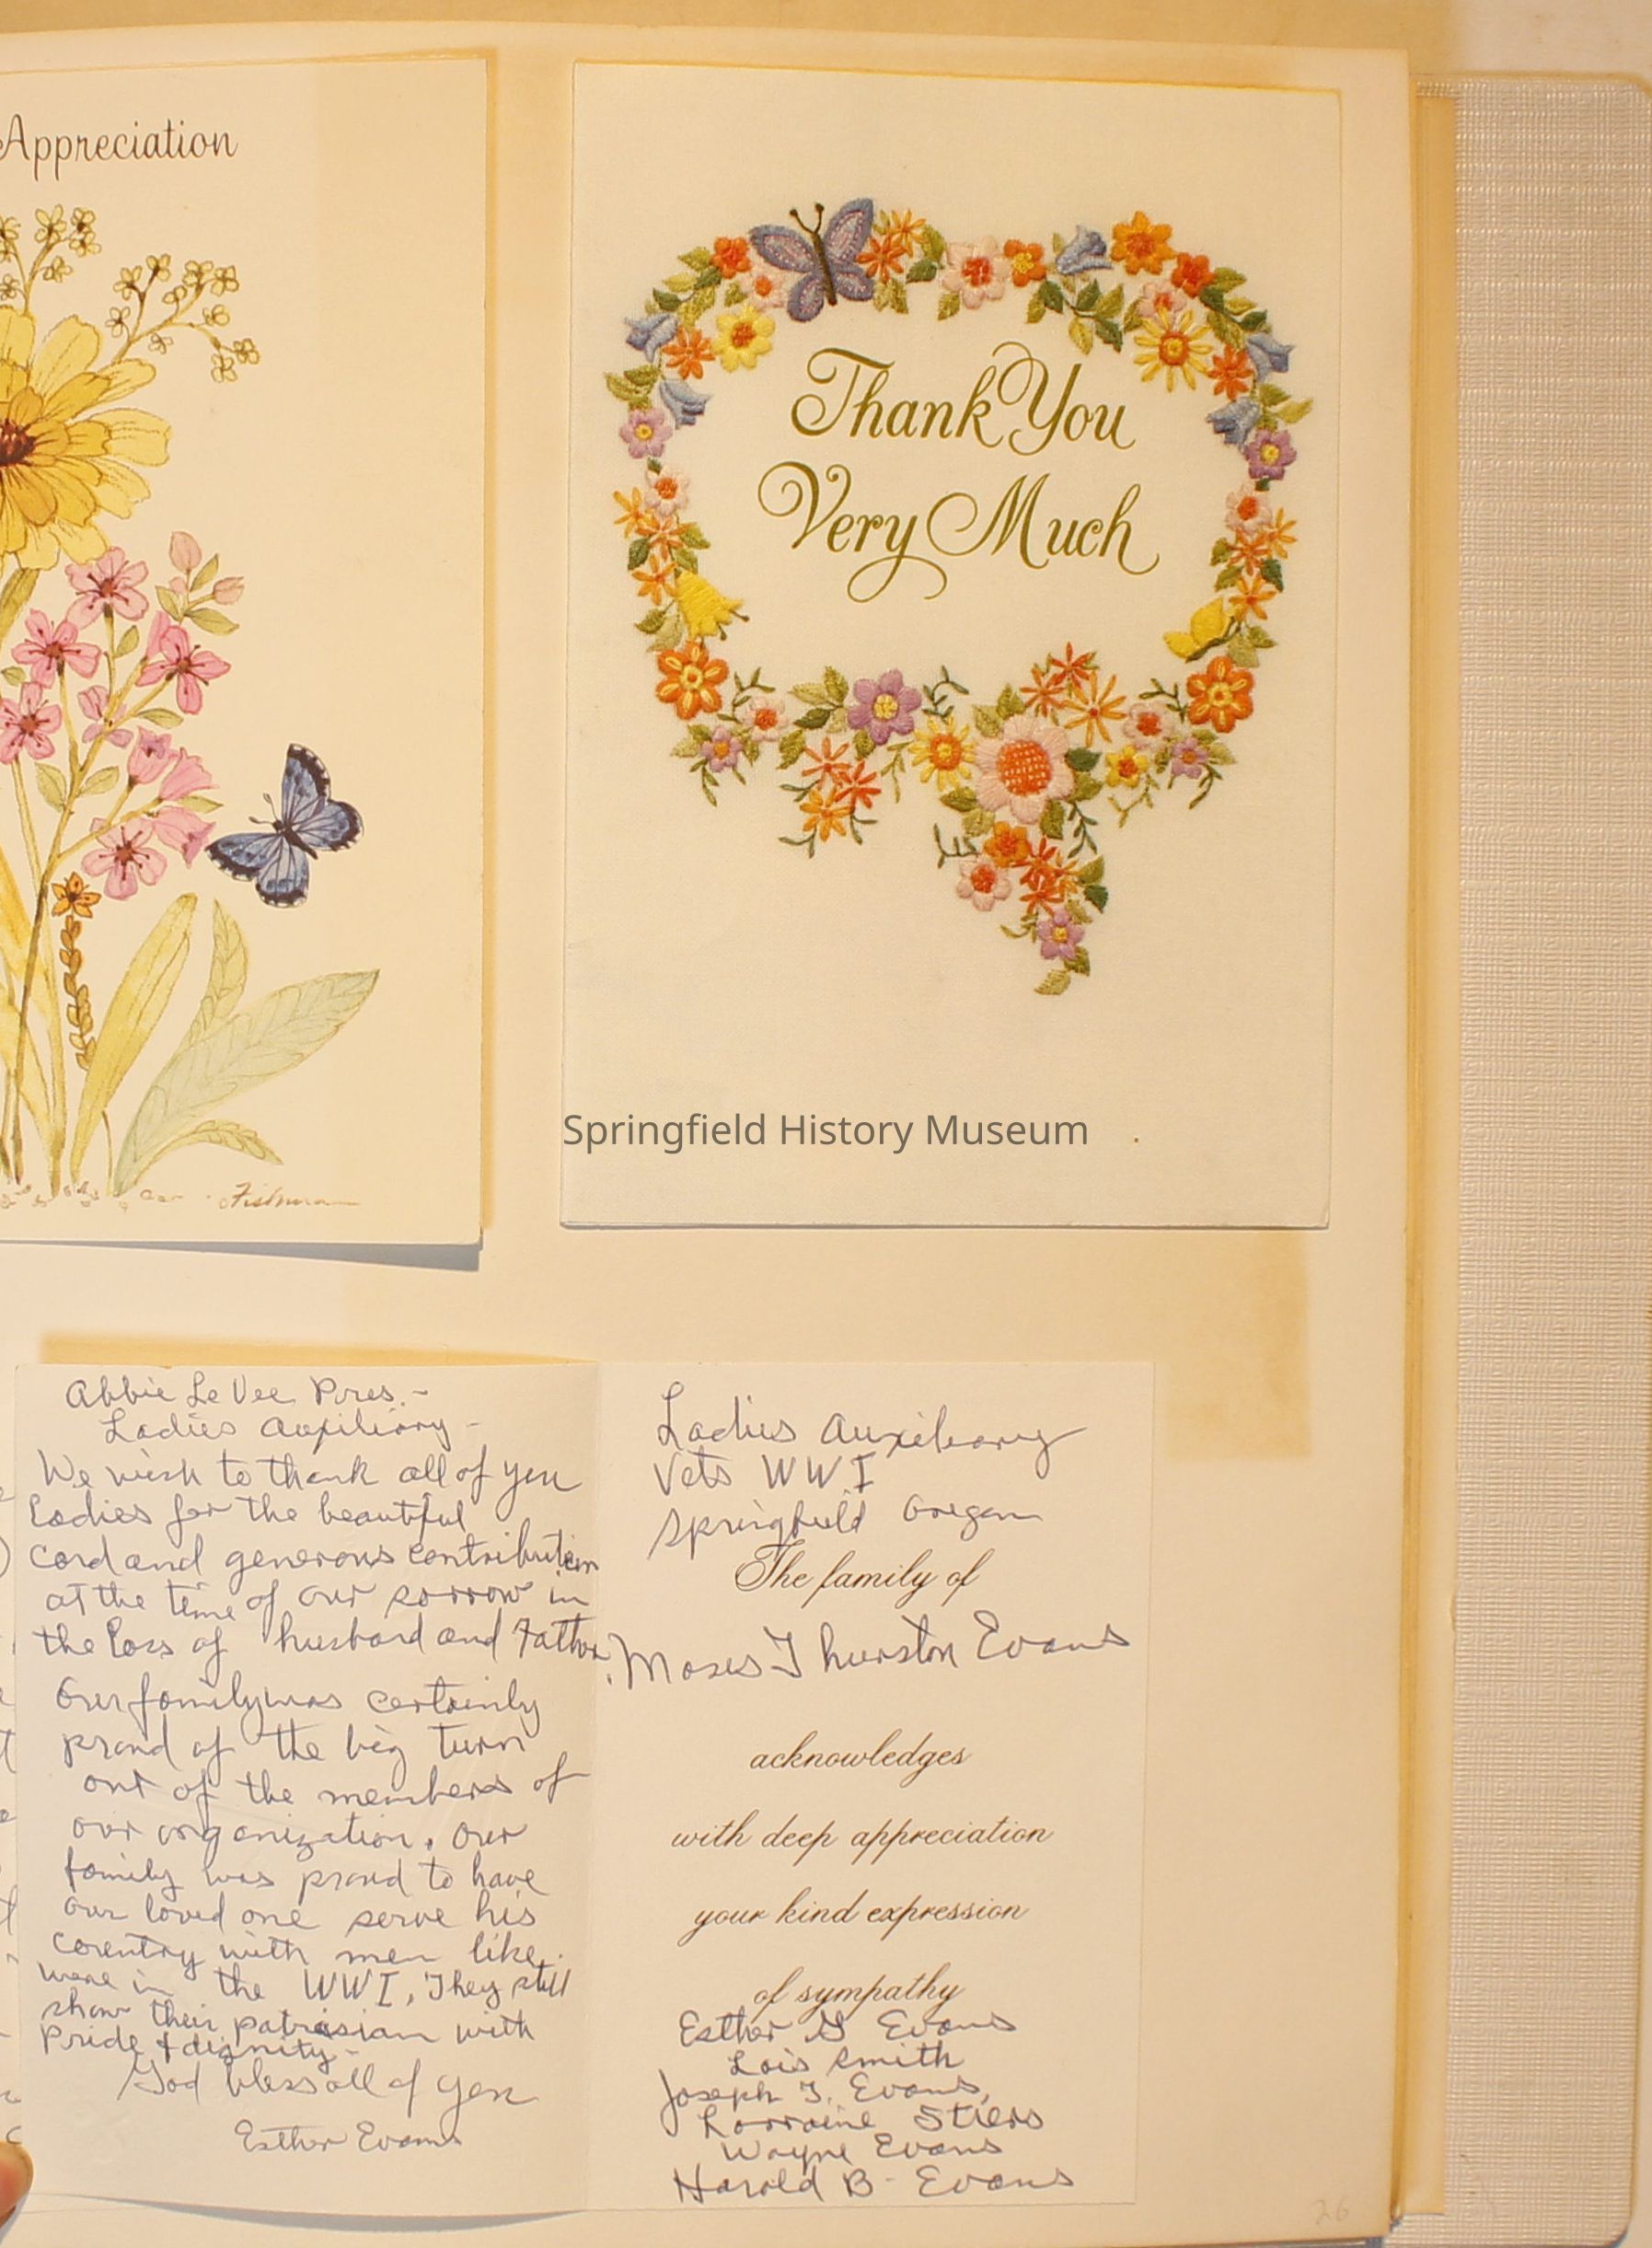 Appreciation
Thank You
Very Much
Springfield History Museum
Fishman
Abbie Le Vee Pres.-
Ladies Auxiliary-
We wish to thank all of you
Ladies for the beautiful
card and generous contribution
at the time of our sorrow in
the loss of husband and Father.
Our family was certainly
proud of the big turn
out of the members of
our organization. Our
family was proud to have
our loved one serve his
country with men like
were in the WWI, They still
show their patrosiam with
Pride & dignity-
God bless all of you
Esther Evans
Ladies Auxiliary
Vets WWI
Springfield Oregon
The family of
Moses Thurston Evans
acknowledges
with deep appreciation
your kind expression
of sympathy
Esther G Evans
Lois Smith
Joseph T. Evans,
Lorraine Stiers
Wayne Evans
Harold B- Evans
26